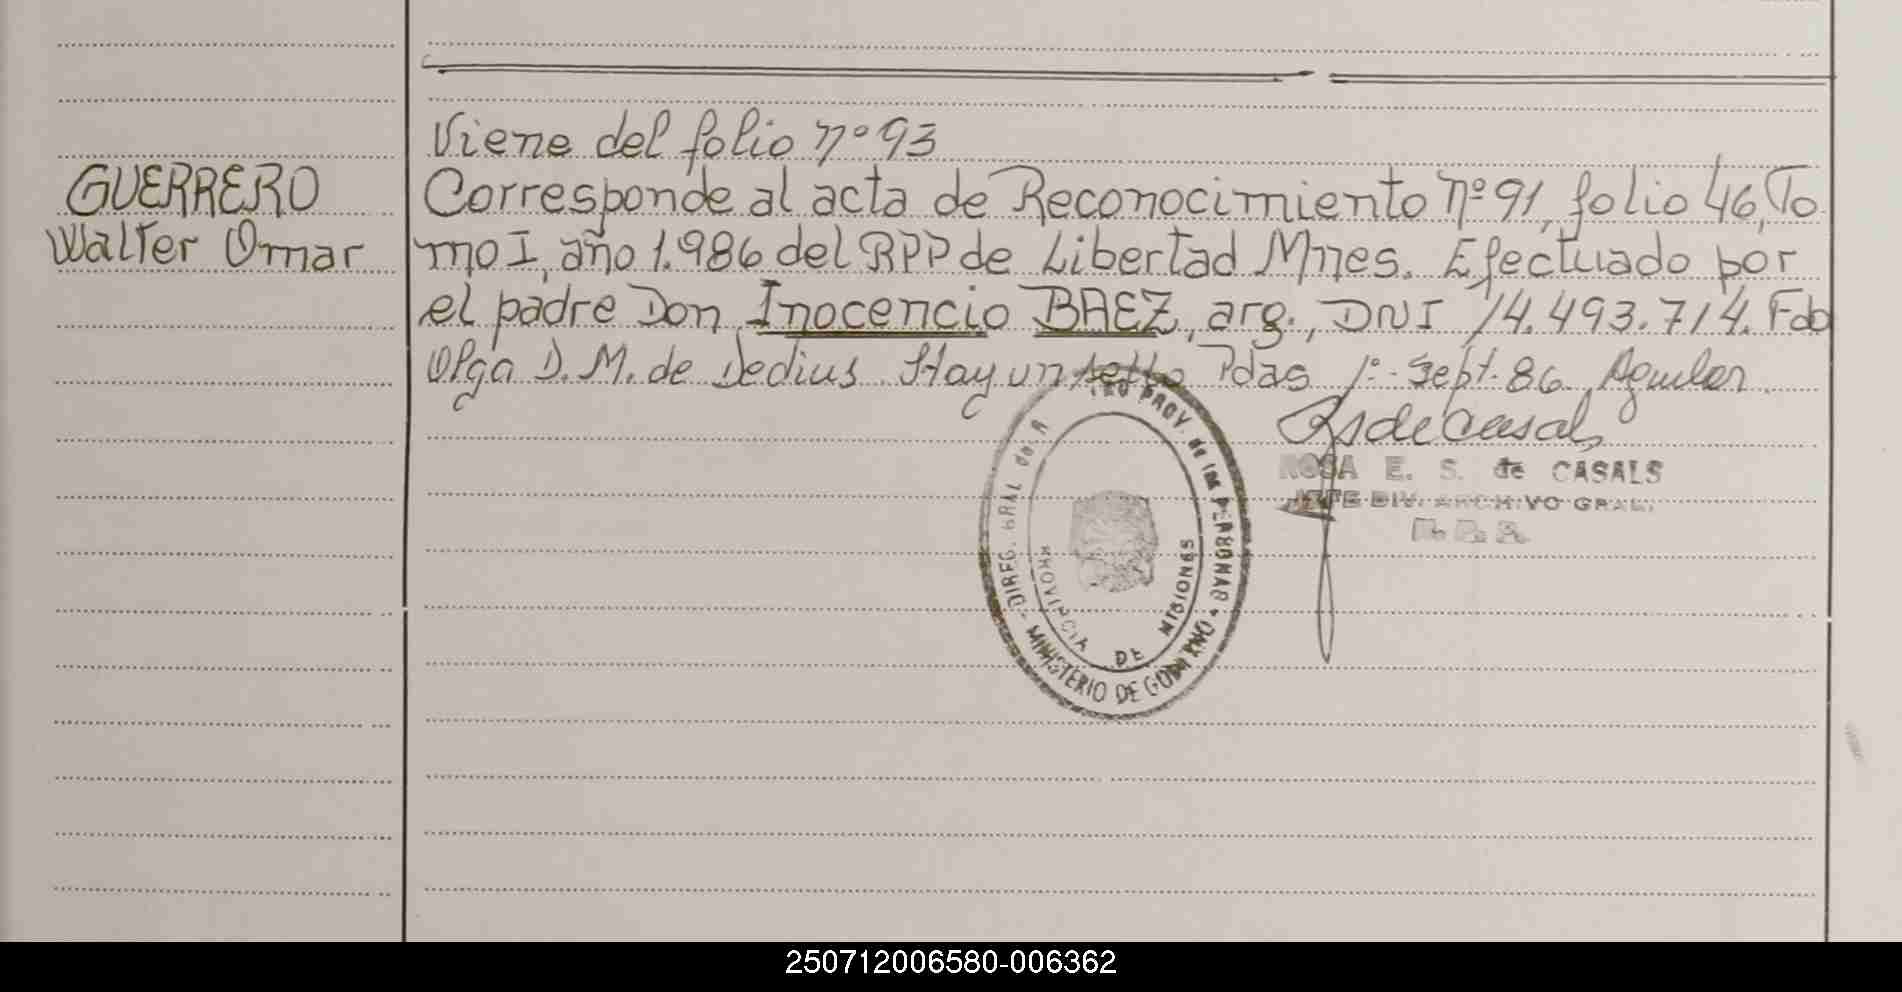 Viene del folio nº 93
GUERRERO
Walter Omar
Corresponde al acta de Reconocimiento nº 91, folio 46, To
mo I, año 1.986 del RPP de Libertad Mnes. Efectuado por
el padre Don Inocencio BAEZ, arg., DNI 14.493.714. Fdo
Olga D. M. de Dedius. Hay un sello Pdas 1º Sept. 86. Aguilar.
RsdeCasals
ROSA E. S. de CASALS
JEFE DIV. ARCHIVO GRAL.
DIREC. GRAL de
PROV. de las PERSONAS
MINISTERIO DE GOBIERNO
PROVINCIA DE MISIONES
250712006580-006362